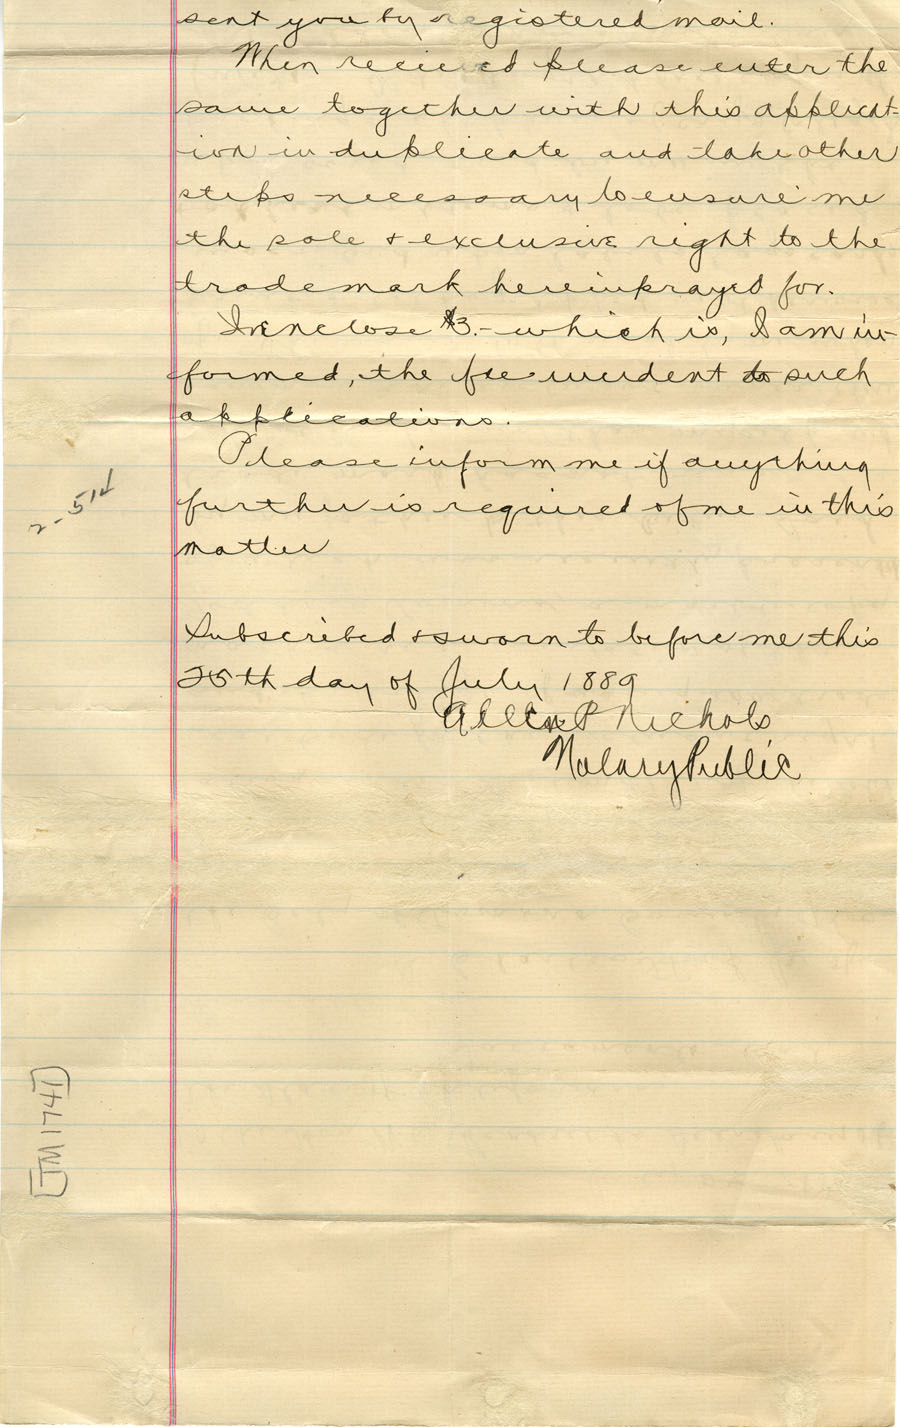 sent you by registered mail.
When recieved please enter the
same together with this applicat-
ion in duplicate and take other
steps necessary to ensure me
the sole & exclusive right to the
trademark herein prayed for.
I enclose $3.- which is, I am in-
formed, the fee incident to such
applications.
Please inform me if anything
further is required of me in this
matter
2-514
Subscribed & sworn to before me this
25th day of July 1889
Allen P Nichols
Notary Public
TM 1741